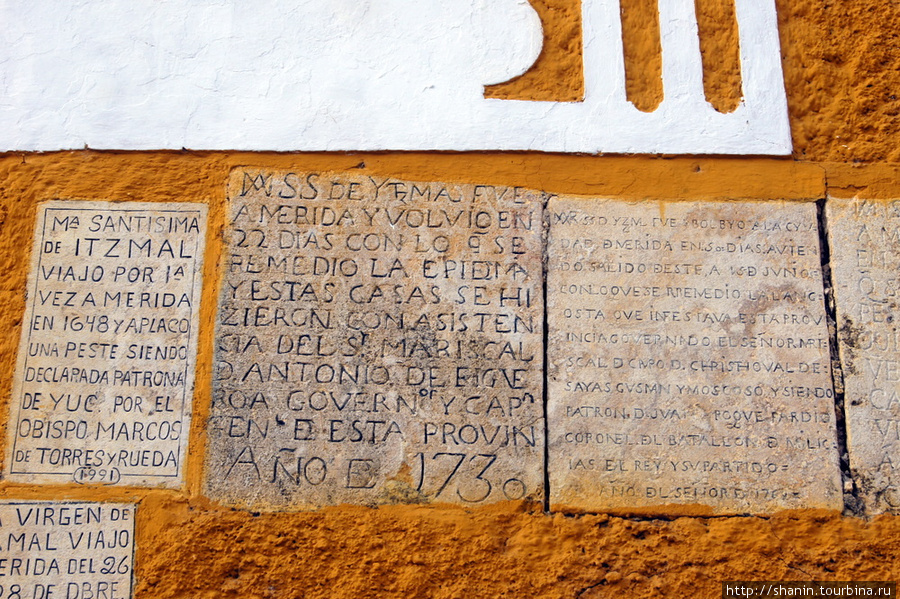 Mᴬ SANTISIMA
DE ITZMAL
VIAJO POR 1ᴬ
VEZ A MERIDA
EN 1648 Y APLACO
UNA PESTE SIENDO
DECLARADA PATRONA
DE YUC. POR EL
OBISPO, MARCOS
DE TORRES Y RUEDA
1991
VIRGEN DE
MAL VIAJO
ERIDA DEL 26
8 DE DBRE.
SS DE YTZMAL FUE
A MERIDA Y VOLVIO EN
22 DIAS CON LO Q SE
REMEDIO LA EPIDMA
Y ESTAS CASAS SE HI
ZIERON CON ASISTEN
SIA DEL Sʳ MARISCAL
D ANTONIO DE FIGUE
ROA GOVERNᵒʳ Y CAPⁿ
GENˡ D ESTA PROVIN
AÑO D 1730
SS D YZML FUE Y BOLBYO A LA CYU
DAD D MERIDA EN DIAS AVIE
DO SALIDO DESTE A 16 D JUNIO
CON LO QUE SE REMEDIO LA LANG
OSTA QUE INFESTAVA ESTA PROV
INCIA GOVERNANDO EL SEÑOR MARI
SCAL D CAPO D CHRISTHOVAL DE
SAYAS GUSMAN Y MOSCOSO Y SIENDO
PATRON D JUAN PARDIO
CORONEL DL BATALLON D MILIC
IAS EL REY Y SU PARTIDO
AÑO DL SEÑOR D
http://shanin.tourbina.ru